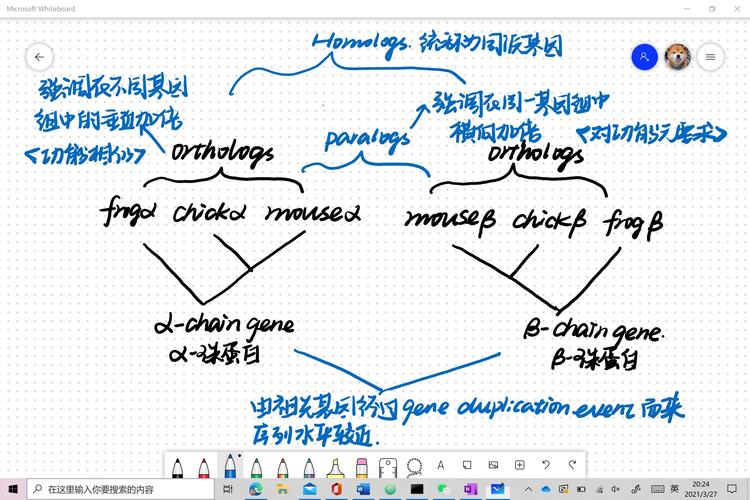 Microsoft Whiteboard
Homologs. 统称为同源基因
强调在不同基因
组中的垂直加传
<功能相似>
强调在同一基因组中
横向加传 <对功能无要求>
orthologs
paralogs
orthologs
frogα chickα mouseα
mouseβ chickβ frogβ
α-chain gene
α-珠蛋白
β-chain gene.
β-珠蛋白
由祖先基因经过 gene duplication event 而来
序列水平较近.
在这里输入你要搜索的内容
英
20:24
2021/3/27